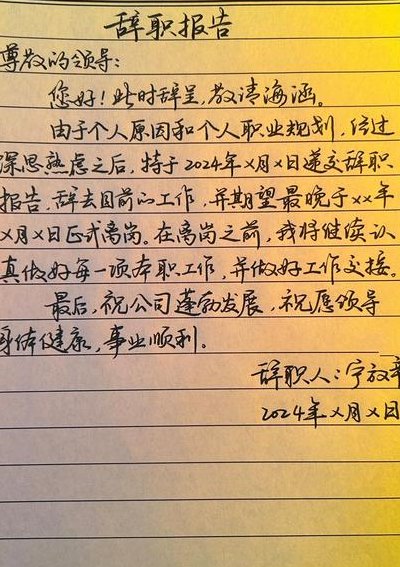 辞职报告
尊敬的领导:
您好!此时辞呈,敬请海涵。
由于个人原因和个人职业规划,经过
深思熟虑之后,特于2024年x月x日递交辞职
报告,辞去目前的工作,并期望最晚于xx年
x月x日正式离岗。在离岗之前,我将继续认
真做好每一项本职工作,并做好工作交接。
最后,祝公司蓬勃发展,祝愿领导
身体健康,事业顺利。
辞职人:宁放
2024年x月x日